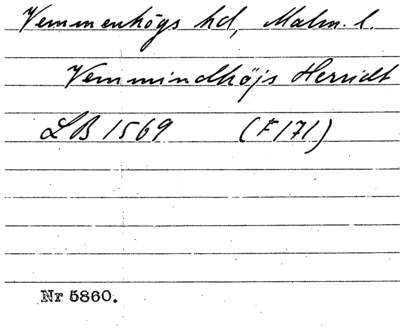 Vemmenhögs hd, Malm. l.
Vemmindhöjs Herridt
LB 1569 (F 171)
Nr 5860.